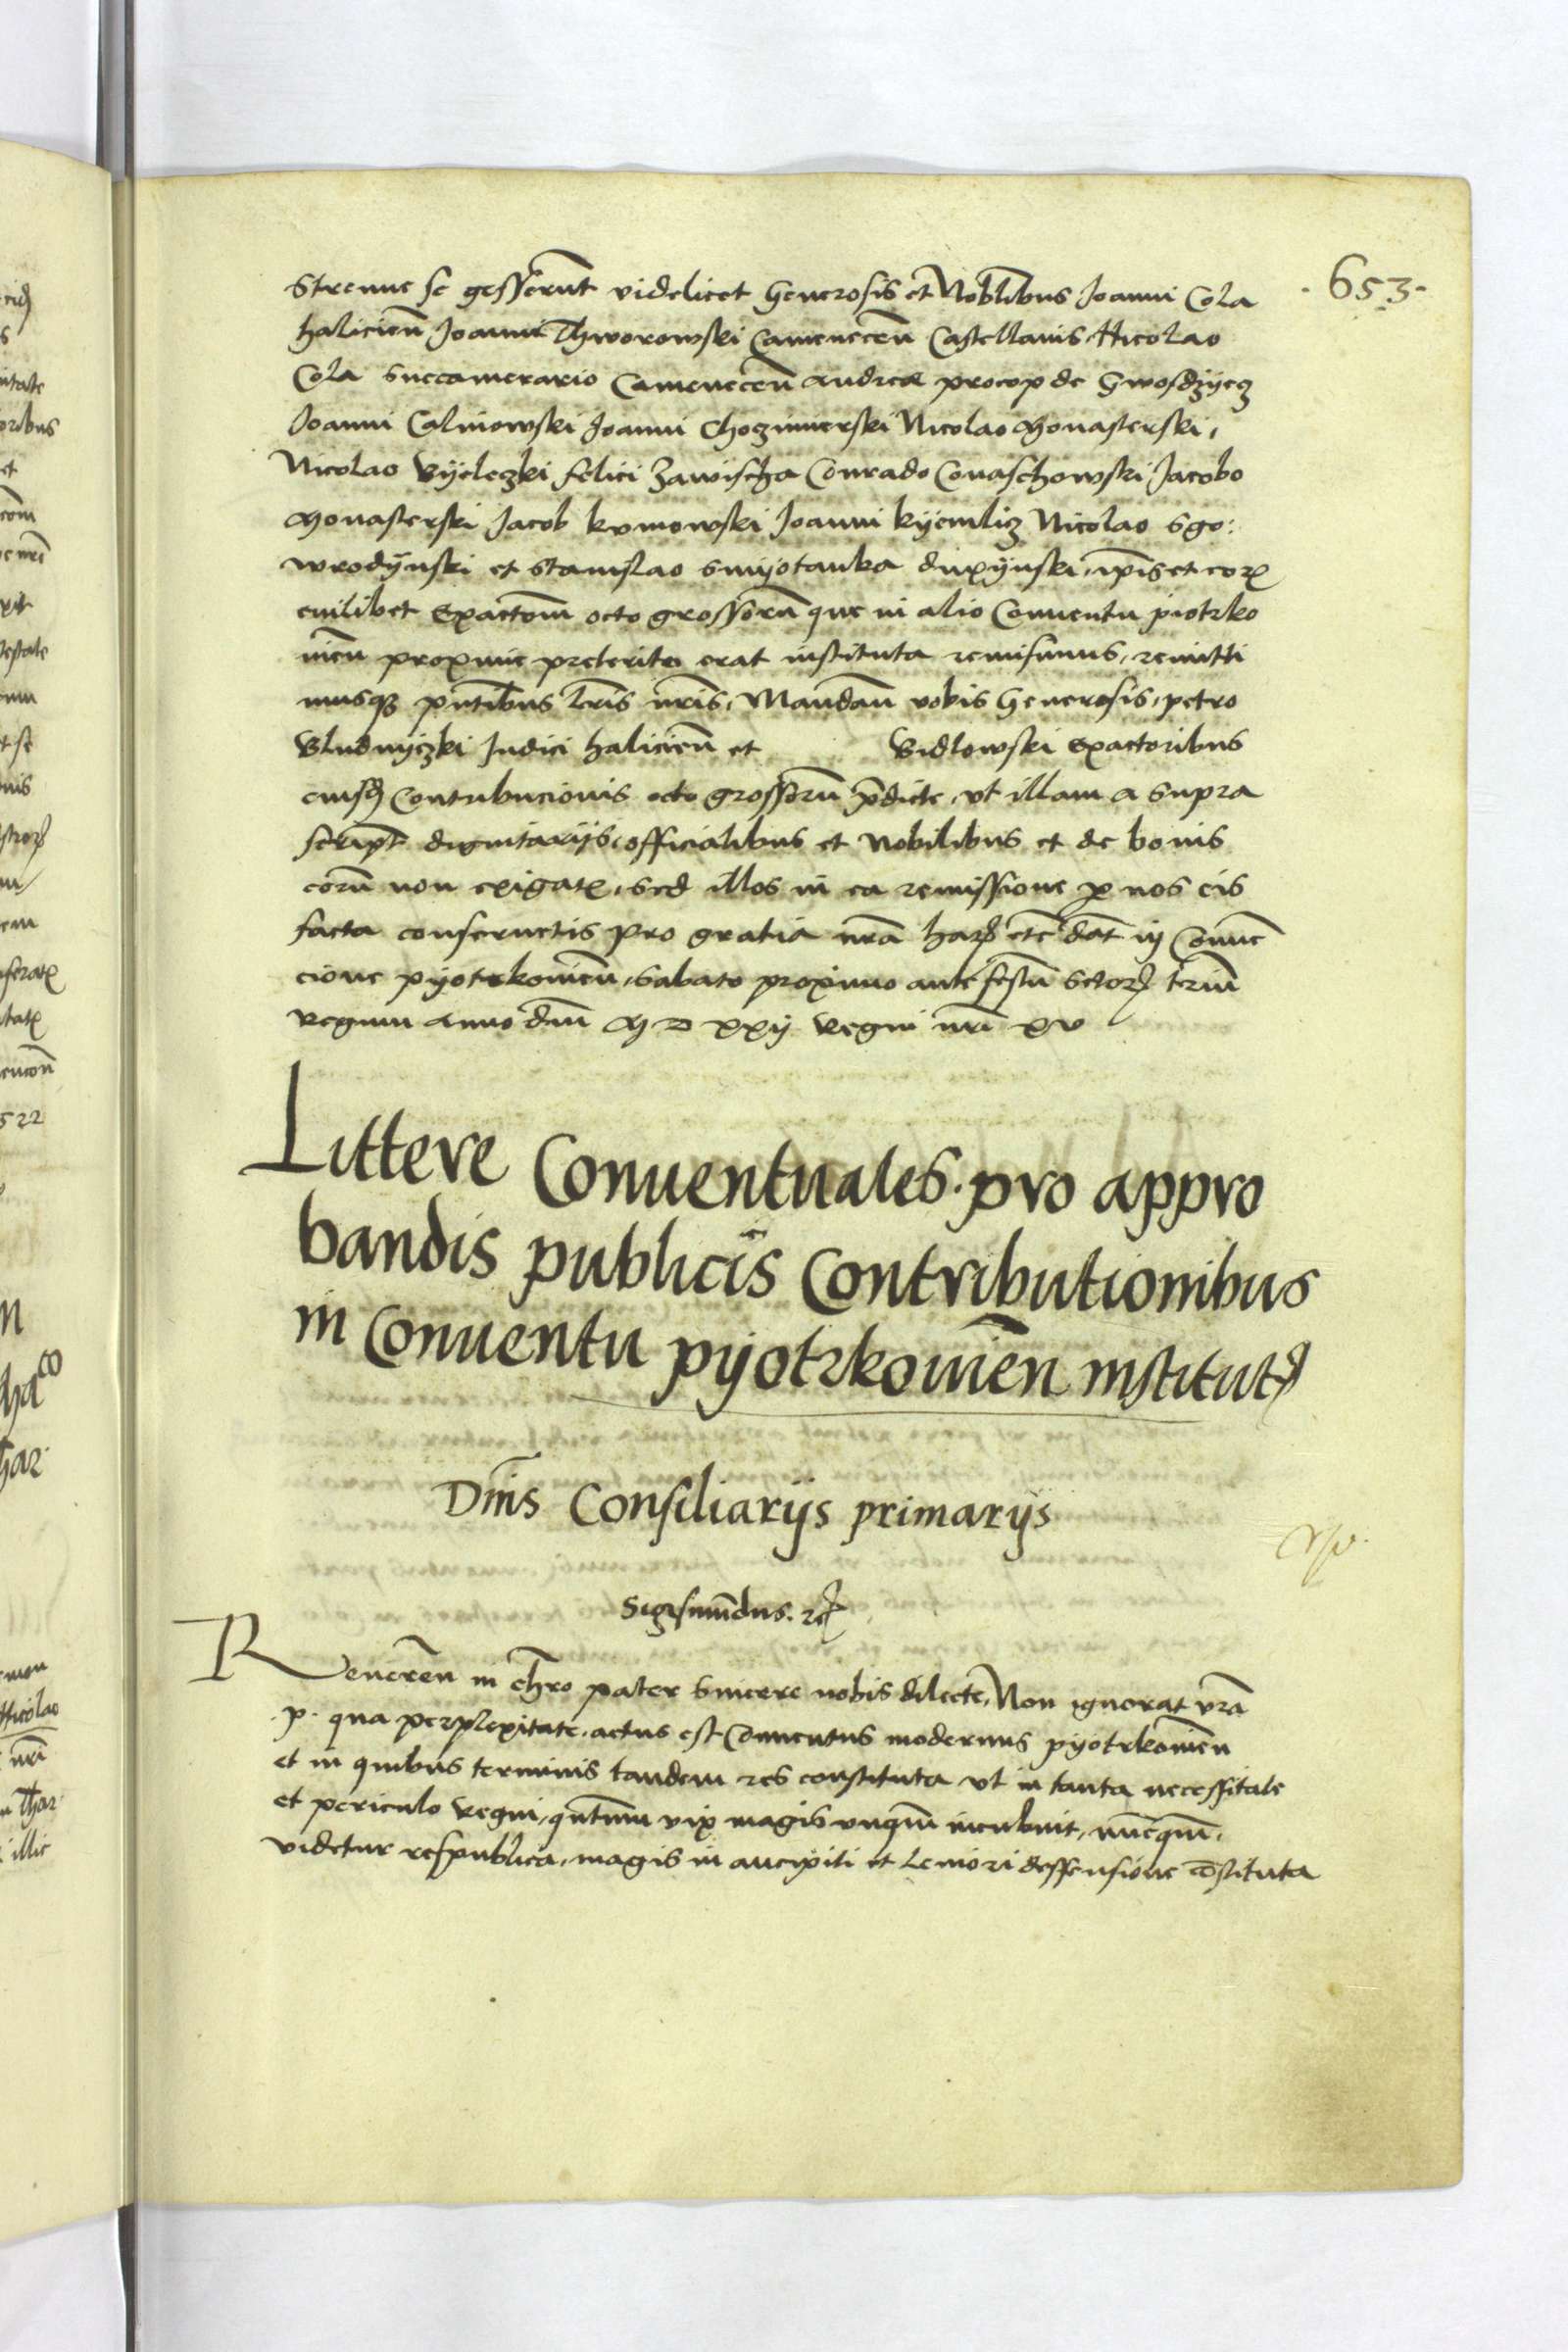 ·653·
Strenue se gesserunt videlicet Generosis et Nobilibus Joanni Cola
halicien̄ Joanni Thworowski Camenecen̄ Castellanis Nicolao
Cola Succamerario Camenecen̄ Andreæ procop de Gwosdzijecz
Joanni Calinowski Joanni Choczimierski Nicolao Monasterski,
Nicolao Vijeleczki felici Zawischa Conrado Conaschowski Jacobo
Monasterski Jacob kumowski Joanni kijemlicz Nicolao Sgo:
wrodijnski et Stanislao Smijotanka ip̄is et eorꝝ
cuilibet exactoīn octo grossorū que in alio Conuentu piotrko
nien̄ proxime preterito erat instituta remisimus, remitti
musqꝫ pn̄tibus lr̄is nr̄is, Mandan̄ vobis Generosis, petro
Bludnijczki Judici halicien̄ et Vidlowski Exactoribus
eiusd̄ Contribucionis octo grossorū p̄dicte, vt illam a supra
script̄ dignitarijs, officialibus et Nobilibus et de bonis
eorū non exigatꝭ, sed illos in ea remissione ꝑ nos eis
facta conseruetis pro gratia nr̄a harꝝ etc̄ dat̄ in Conue
cione pijotrkonien̄, Sabato proximo ante festū Sctorꝝ triū
regum anno dn̄i M D xxij Regni nr̄i xv
Littere Conuentuales. pro appro
bandis publicis Contributionibus
in Conuentu pijotrkonien̄ institutꝭ
Dn̄is Consiliarijs primarijs
Sigismūdus. ꝛc̄
Reueren̄ in chr̄o pater Sincere nobis dilecte, Non ignorat vr̄a
.p. qua perplexitate, actus est Conuentus modernus pijotrkonien̄
et in quibus terminis tandem res constituta vt in tanta necessitate
et periculo Regni, qn̄tum vix magis vnquā incubuit, nunquā,
videtur respublica, magis in ancipiti et leniori deffensione cōstituta